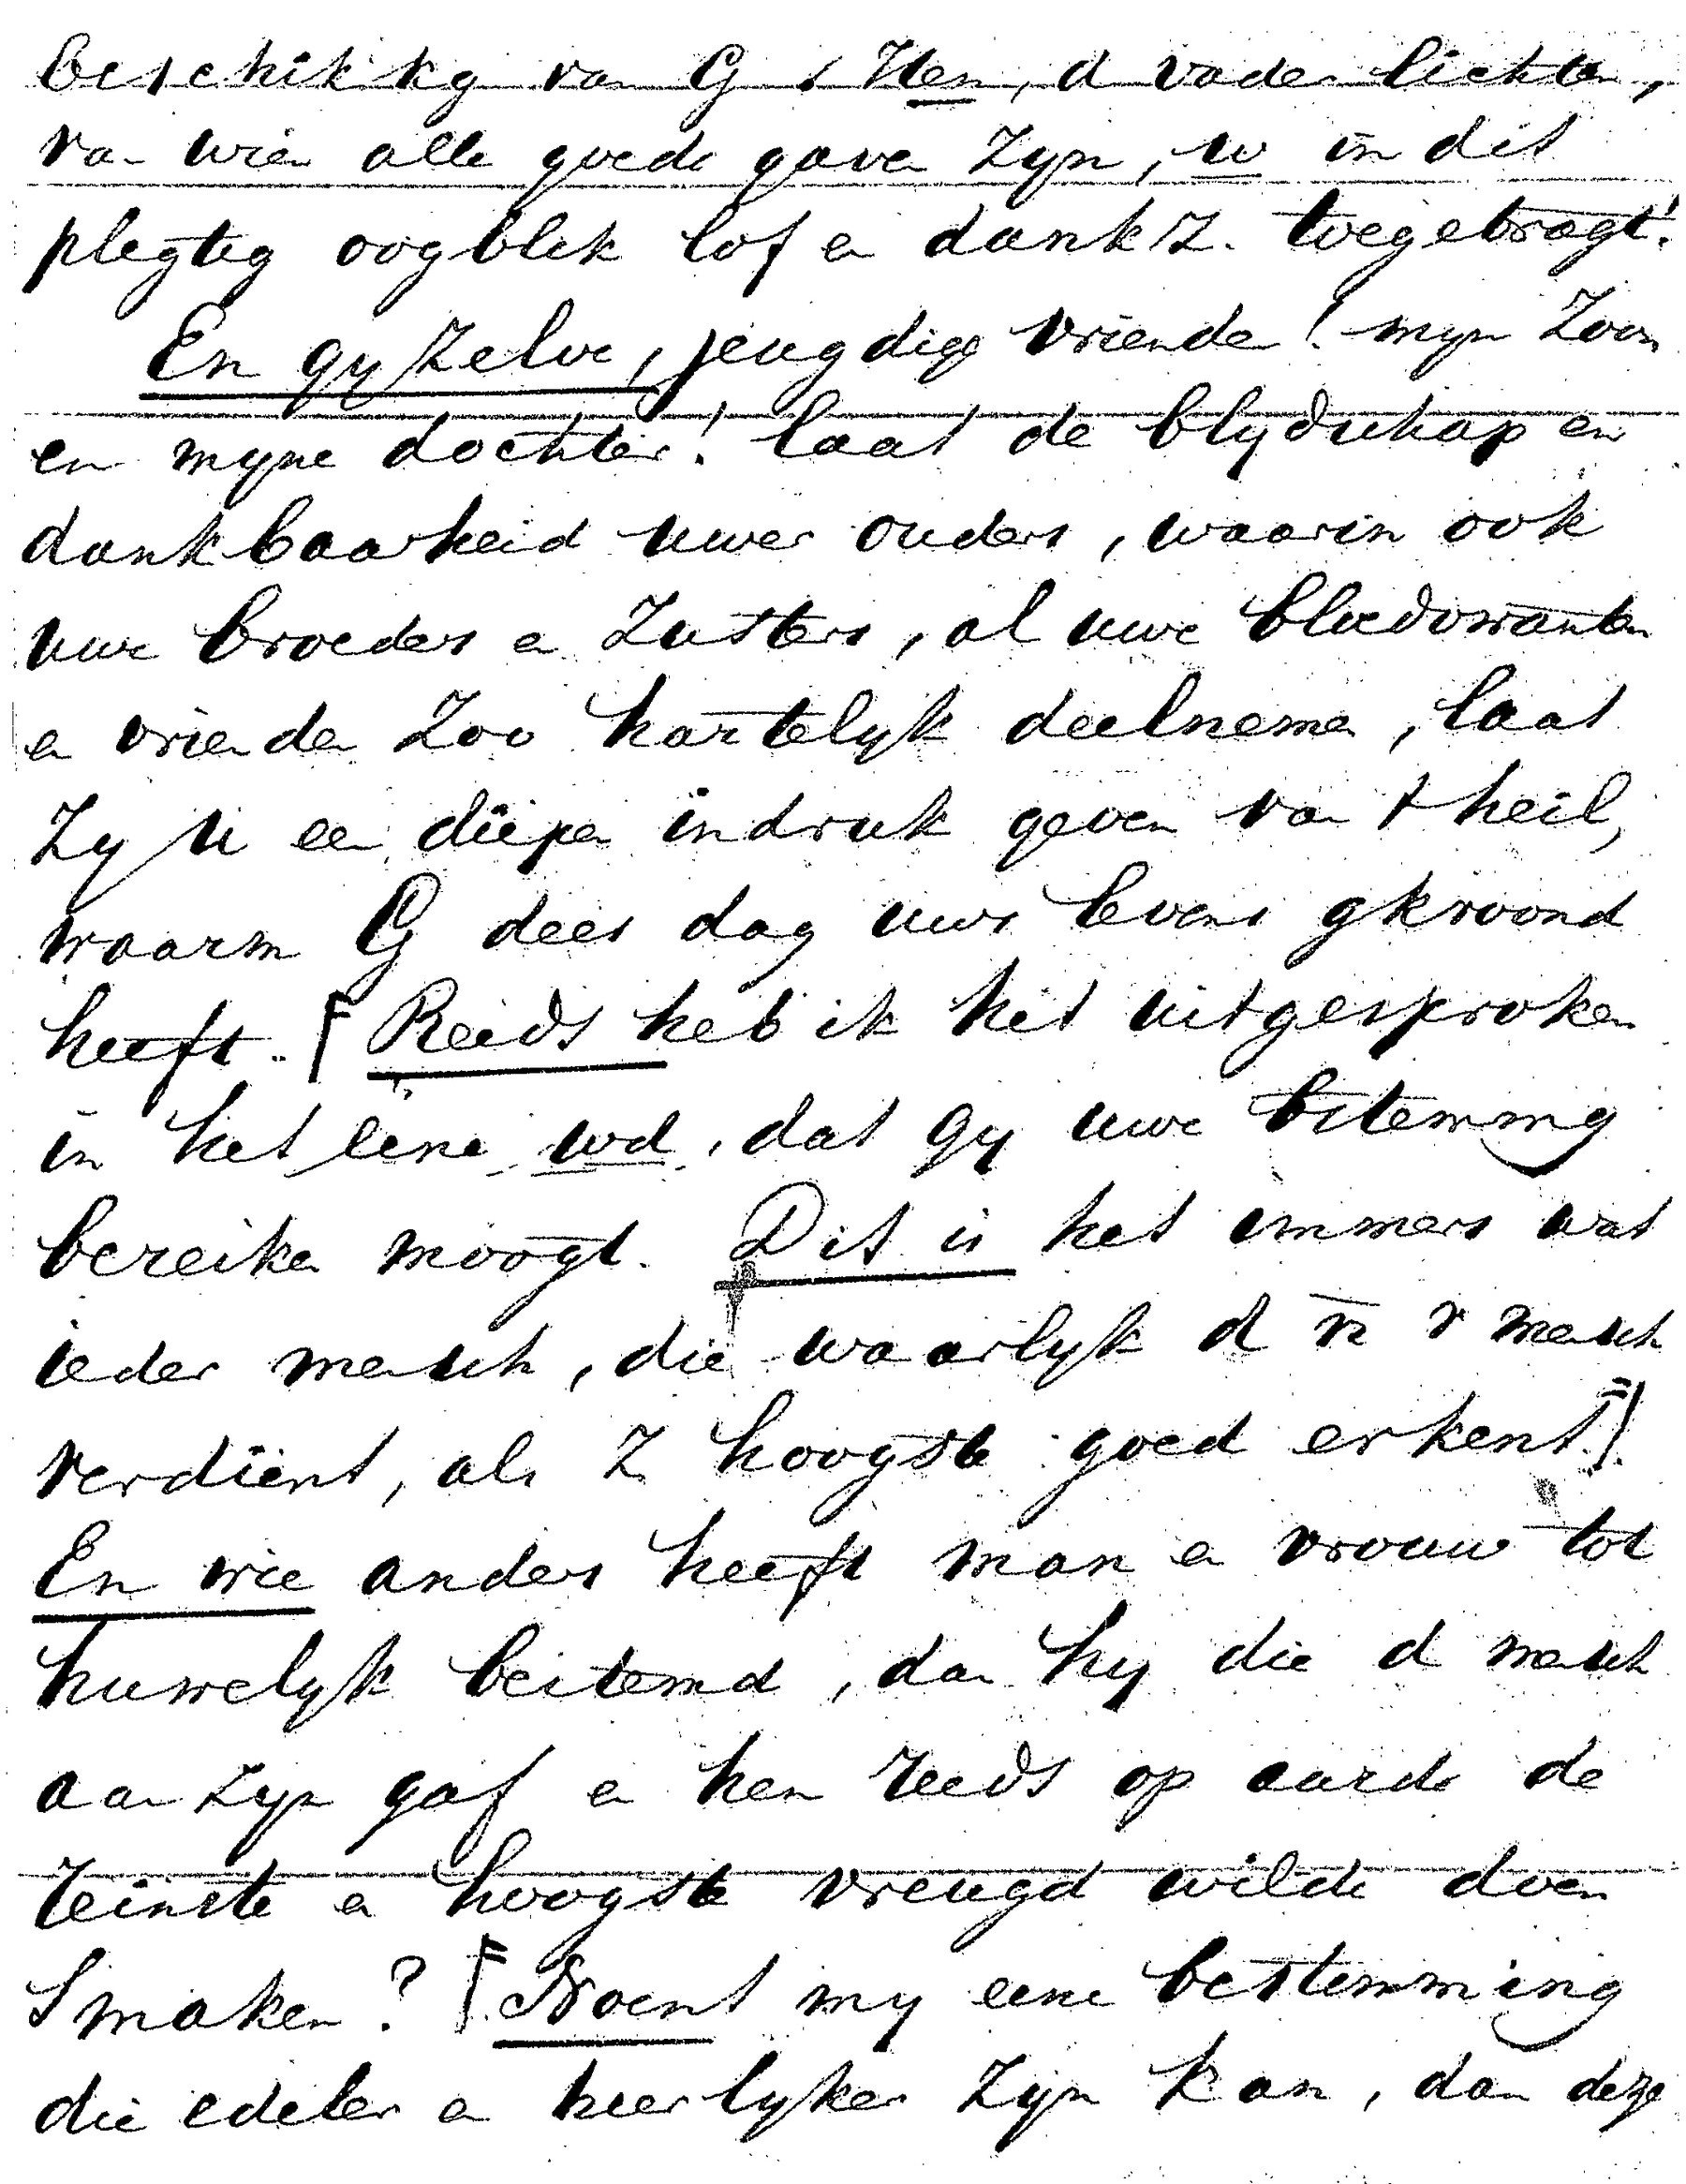 beschikkg van G s Hem, d vader lichten,
va- wien alle goede gaven zyn, w in dit
plegtig oogblik lof en dank z. toegebragt!
En gy zelve, jeugdige vrienden! myn zoon
en myne dochter! laat de blydschap en
dankbaarheid uwer ouders, waarin ook
uwe broeders en zusters, al uwe bloedvwanten
en vrienden zoo hartelyk deelnemen, laat
zy u een diepen indruk geven van t heil,
waarm G dees dag uws levens gkroond
heeft. [ Reeds heb ik het uitgesproken
in het eene wd, dat gy uwe bstemmg
bereiken moogt. Dit is het immers wat
ieder mensch, die waarlyk d n v mensch
verdient, als z hoogste goed erkent.]
En wie anders heeft man en vrouw tot
huwelyk bestemd, dan hy die d mensch
aanzyn gaf en hen reeds op aarde de
reinste en hoogste vreugd wilde doen
smaken? [ Noemt my eene bestemming
die edeler en heerlyker zyn kan, dan deze